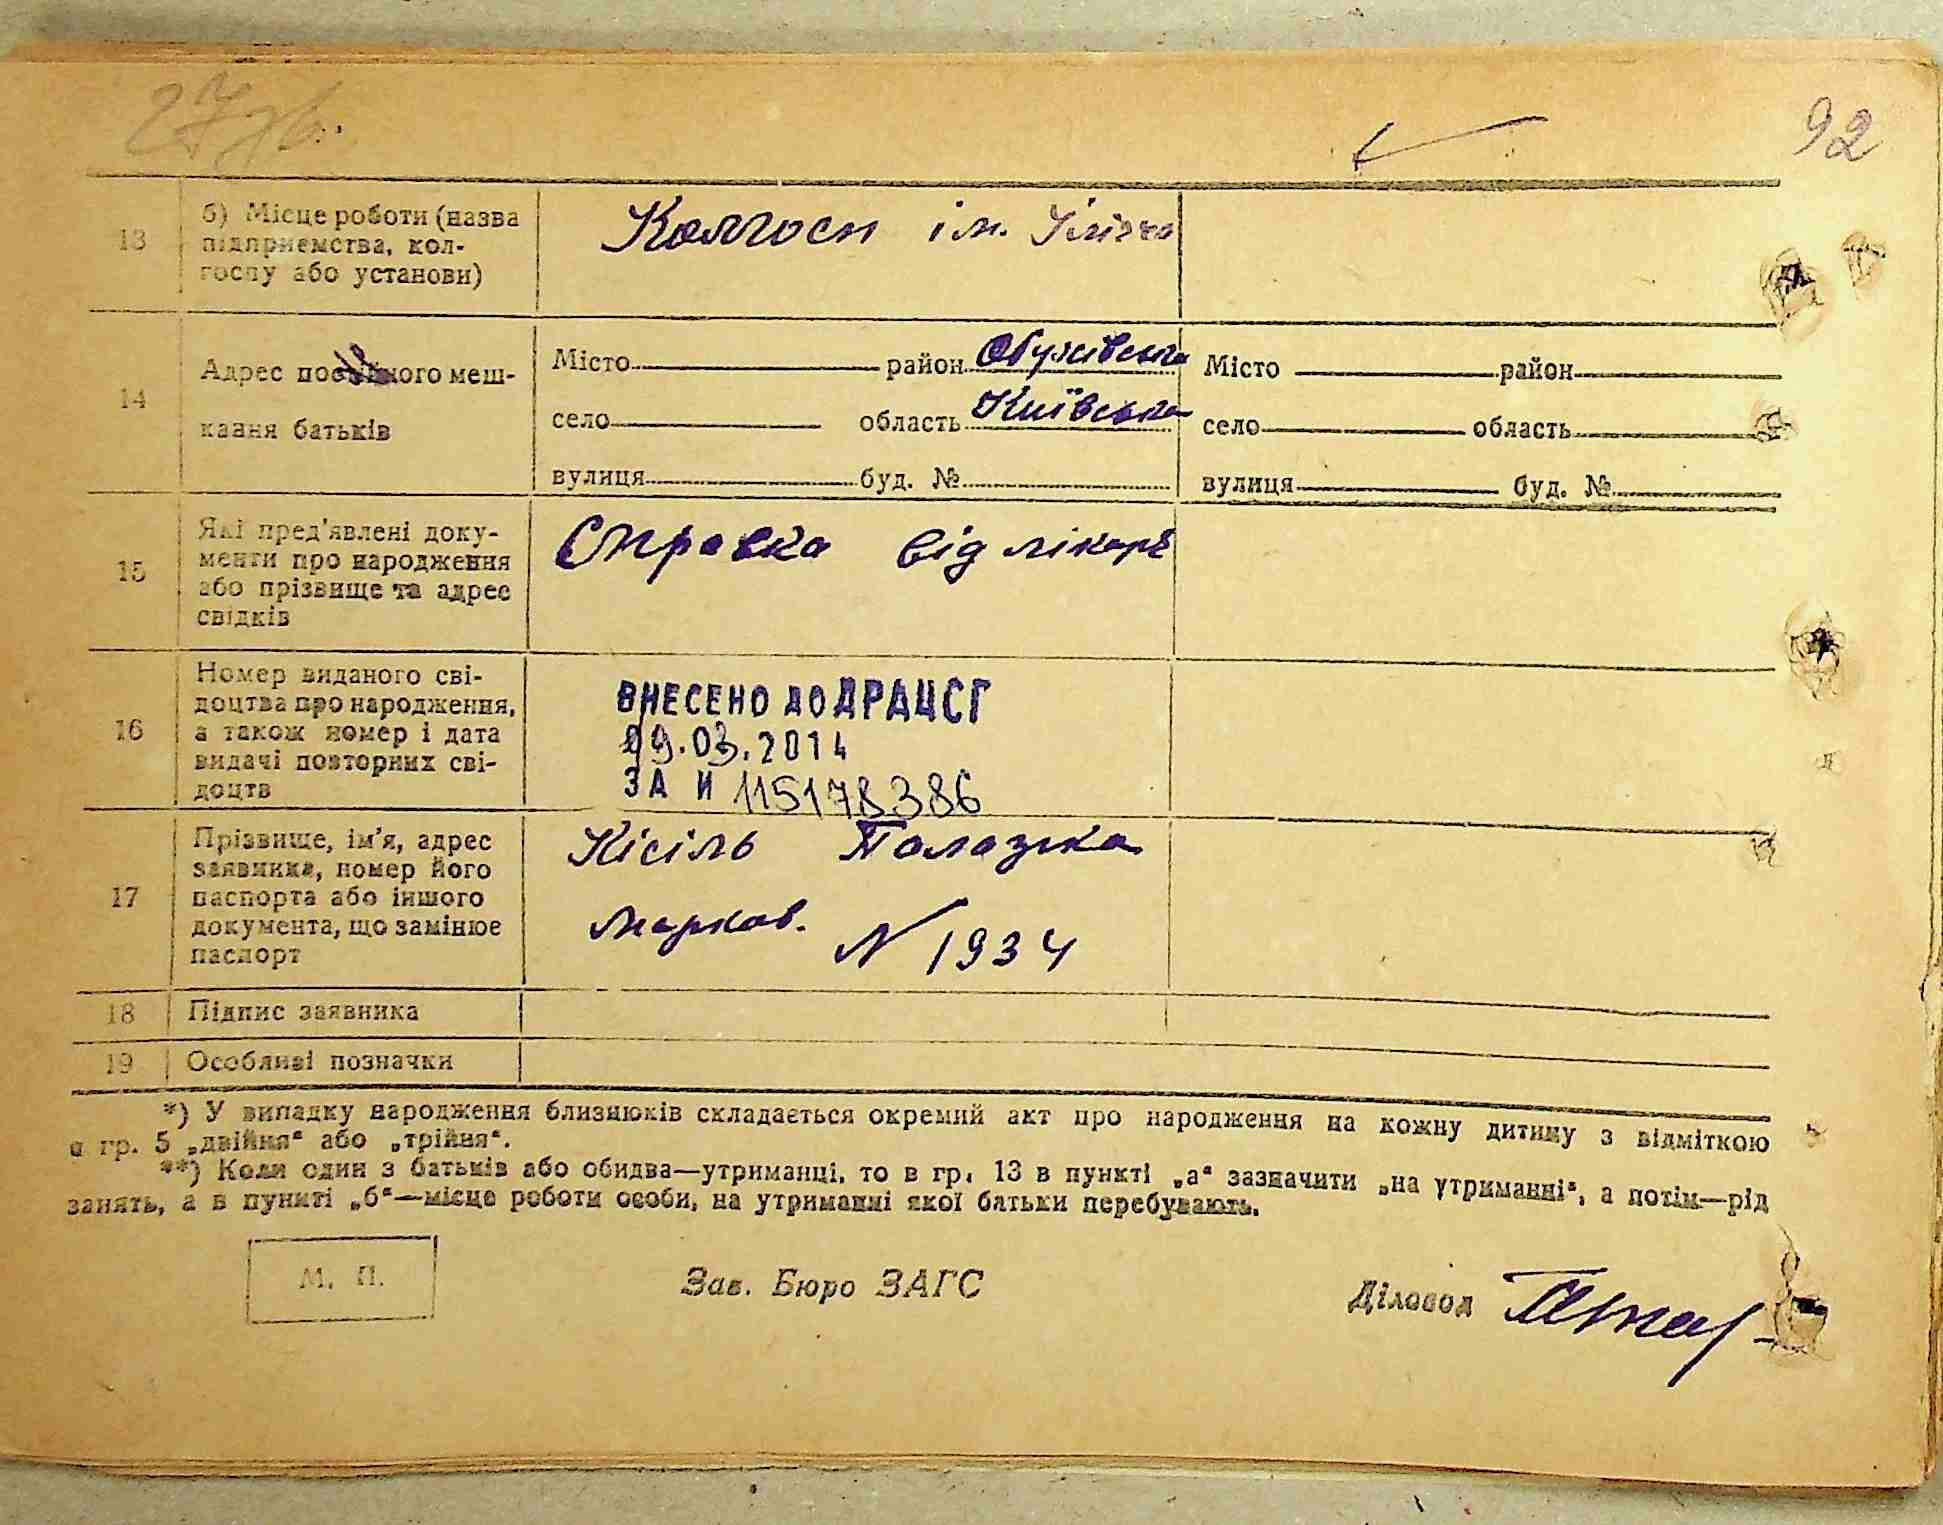 92
13
б) Місце роботи (назва
підприємства, кол-
госпу або установи)
Колгосп ім. Ілліча
14
Адрес постійного меш-
кання батьків
Місто район Обухівськи
село область Київська
вулиця буд. №
Місто район
село область
вулиця буд. №
15
Які пред'явлені доку-
менти про народження
або прізвище та адрес
свідків
Справка від лікаря
16
Номер виданого сві-
доцтва про народження,
а також номер і дата
видачі повторних сві-
доцтв
ВНЕСЕНО ДО ДРАЦСГ
09.03.2014
ЗА И 115178386
17
Прізвище, ім'я, адрес
заявника, номер його
паспорта або іншого
документа, що замінює
паспорт
Кісіль Палазка
Марков. N 1934
18
Підпис заявника
19
Особливі позначки
*) У випадку народження близнюків складається окремий акт про народження на кожну дитину з відміткою
в гр. 5 „двійня“ або „трійня“.
**) Коли один з батьків або обидва—утриманці, то в гр. 13 в пункті „а“ зазначити „на утриманні“, а потім—рід
занять, а в пункті „б“—місце роботи особи, на утриманні якої батьки перебувають.
М. П.
Зав. Бюро ЗАГС
Діловод